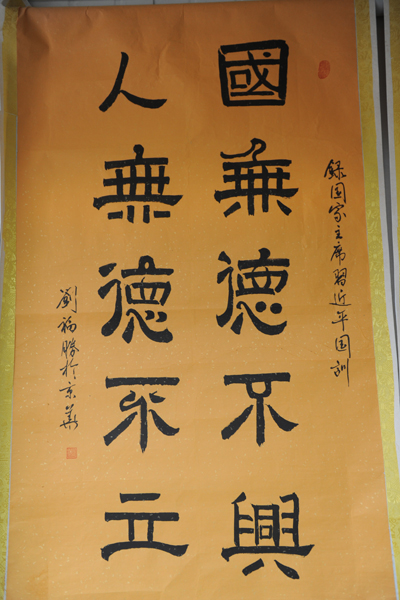 錄国家主席習近平国訓
國無德不興
人無德不立
劉福勝於京華